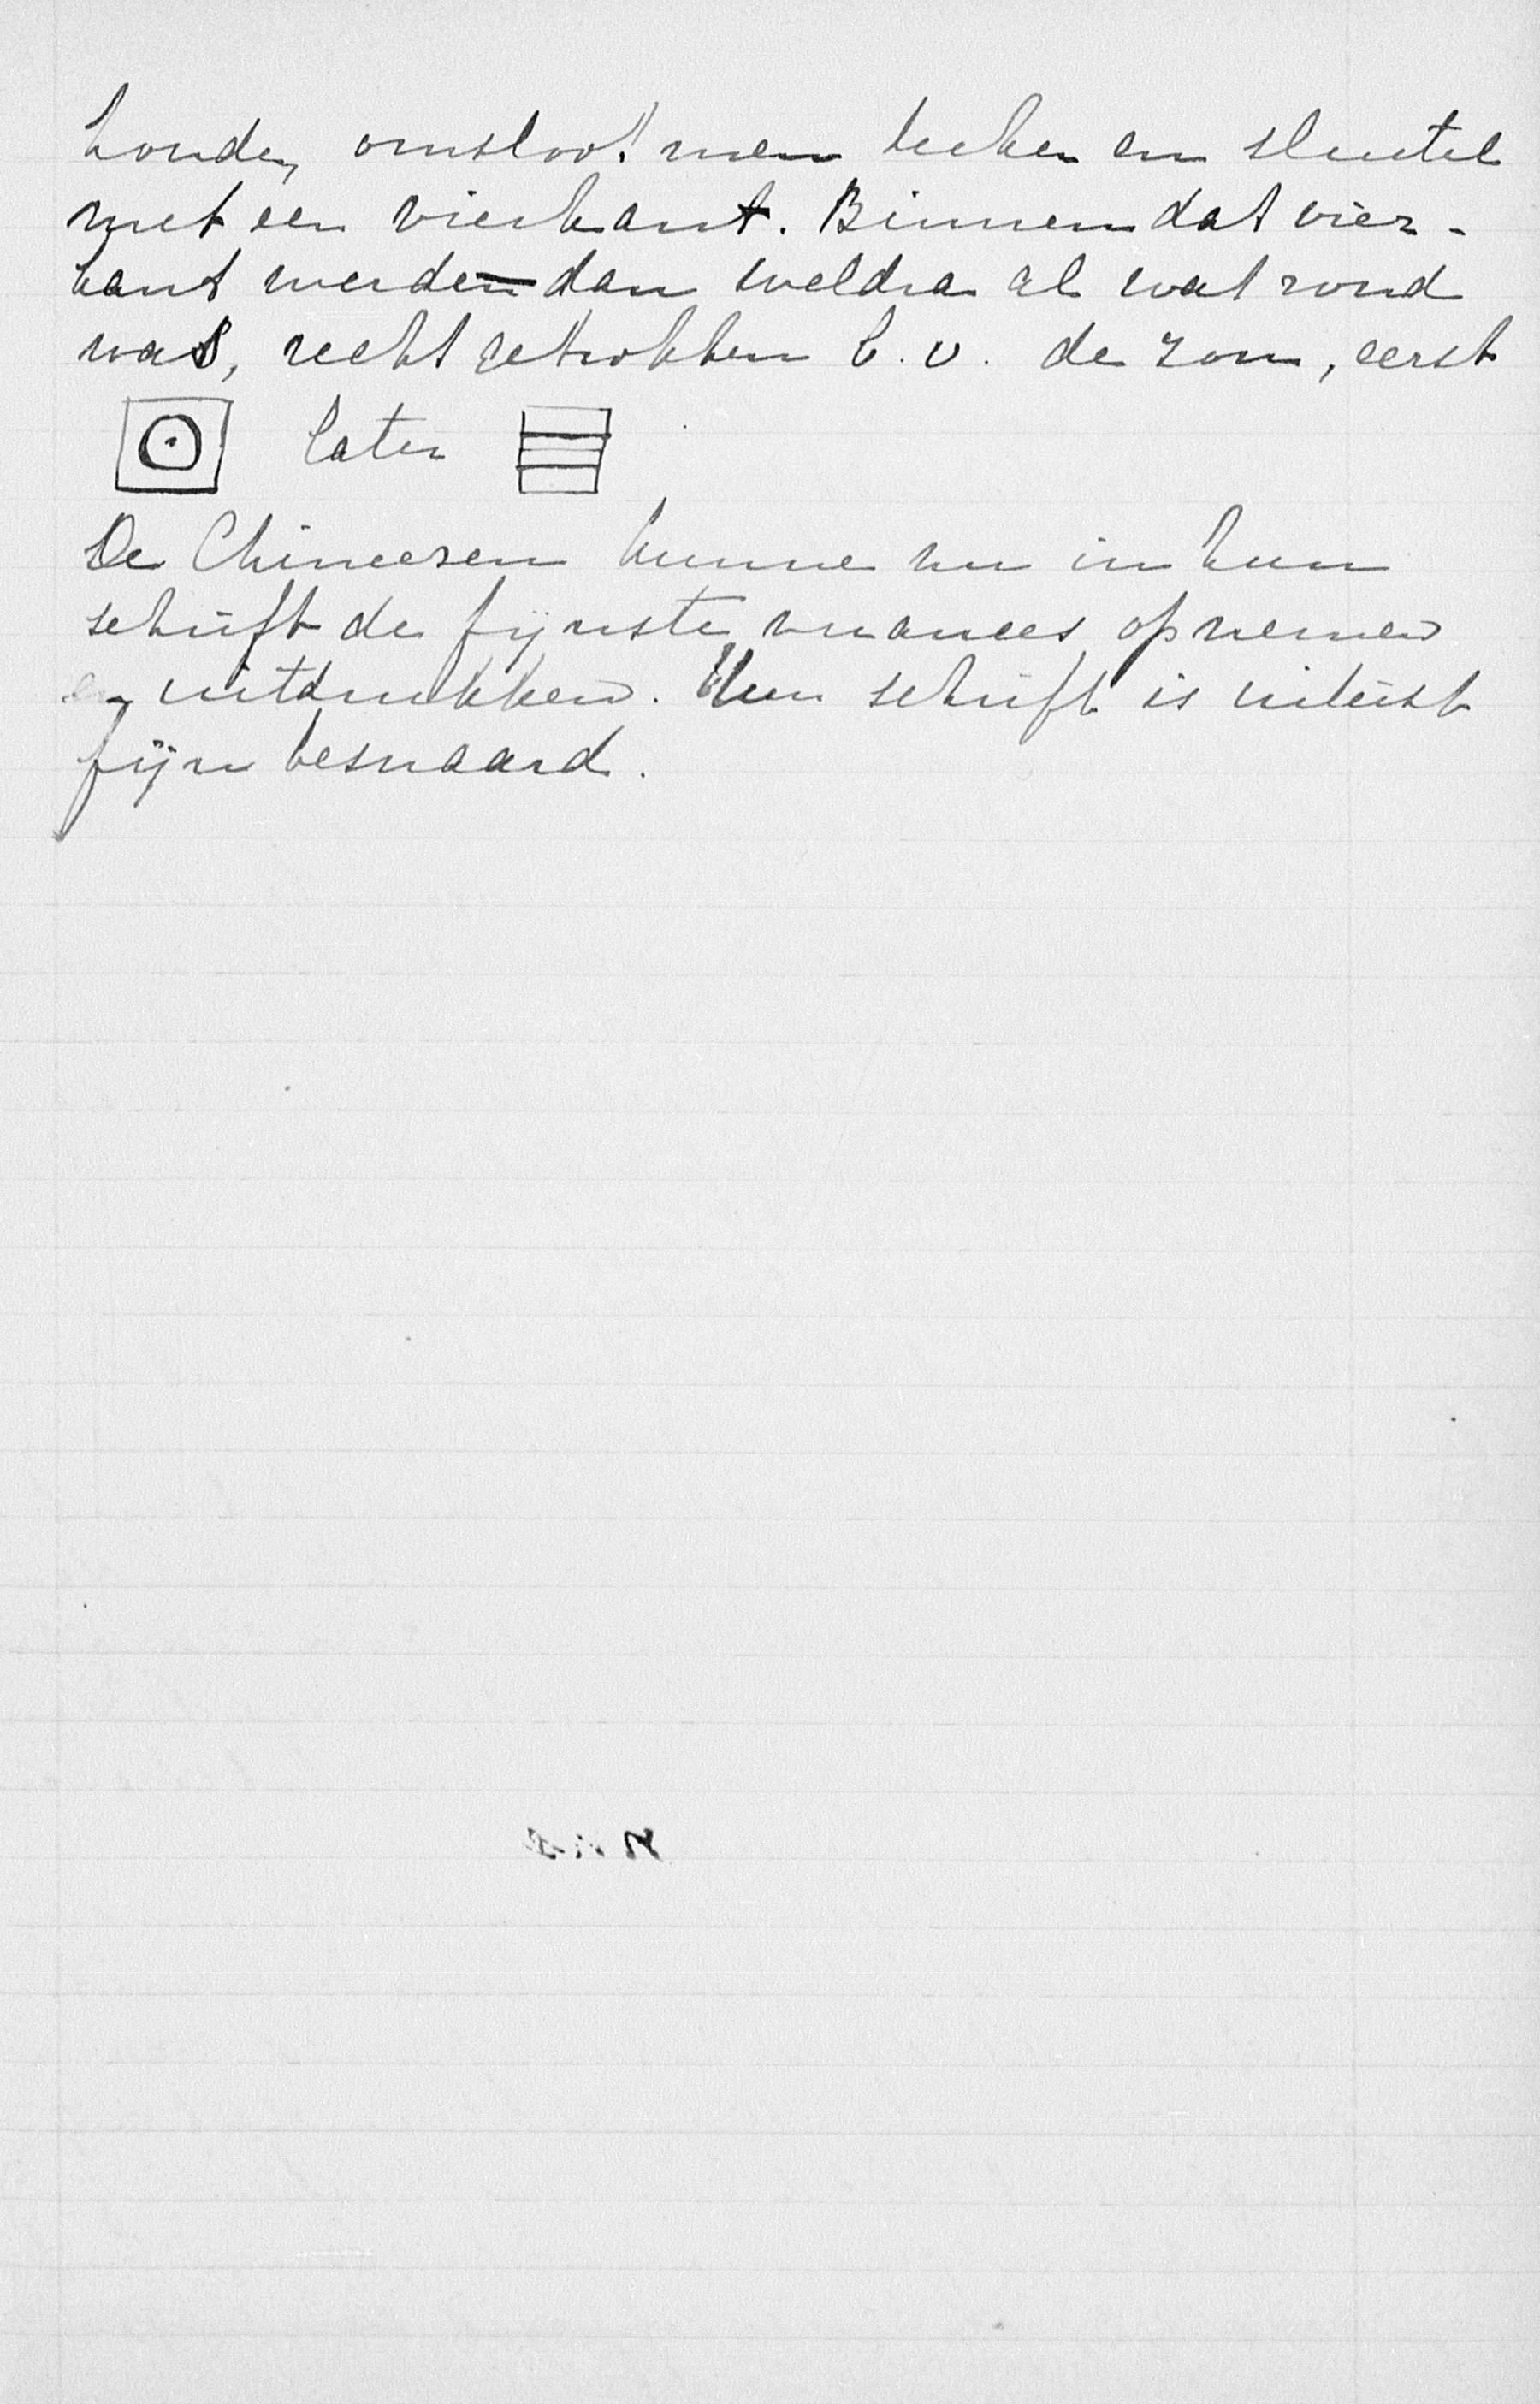 houden, omsloot men teeken en sleutel
met een vierkant. Binnen dat vier-
kant werden dan weldra al wat rond
was, recht getrokken b.v. de zon, eerst
later
De Chineezen kunne nu in hun
schrift de fijnste nuances opnemen
en uitdrukken. Hun schrift is uiterst
fijn besnaard.